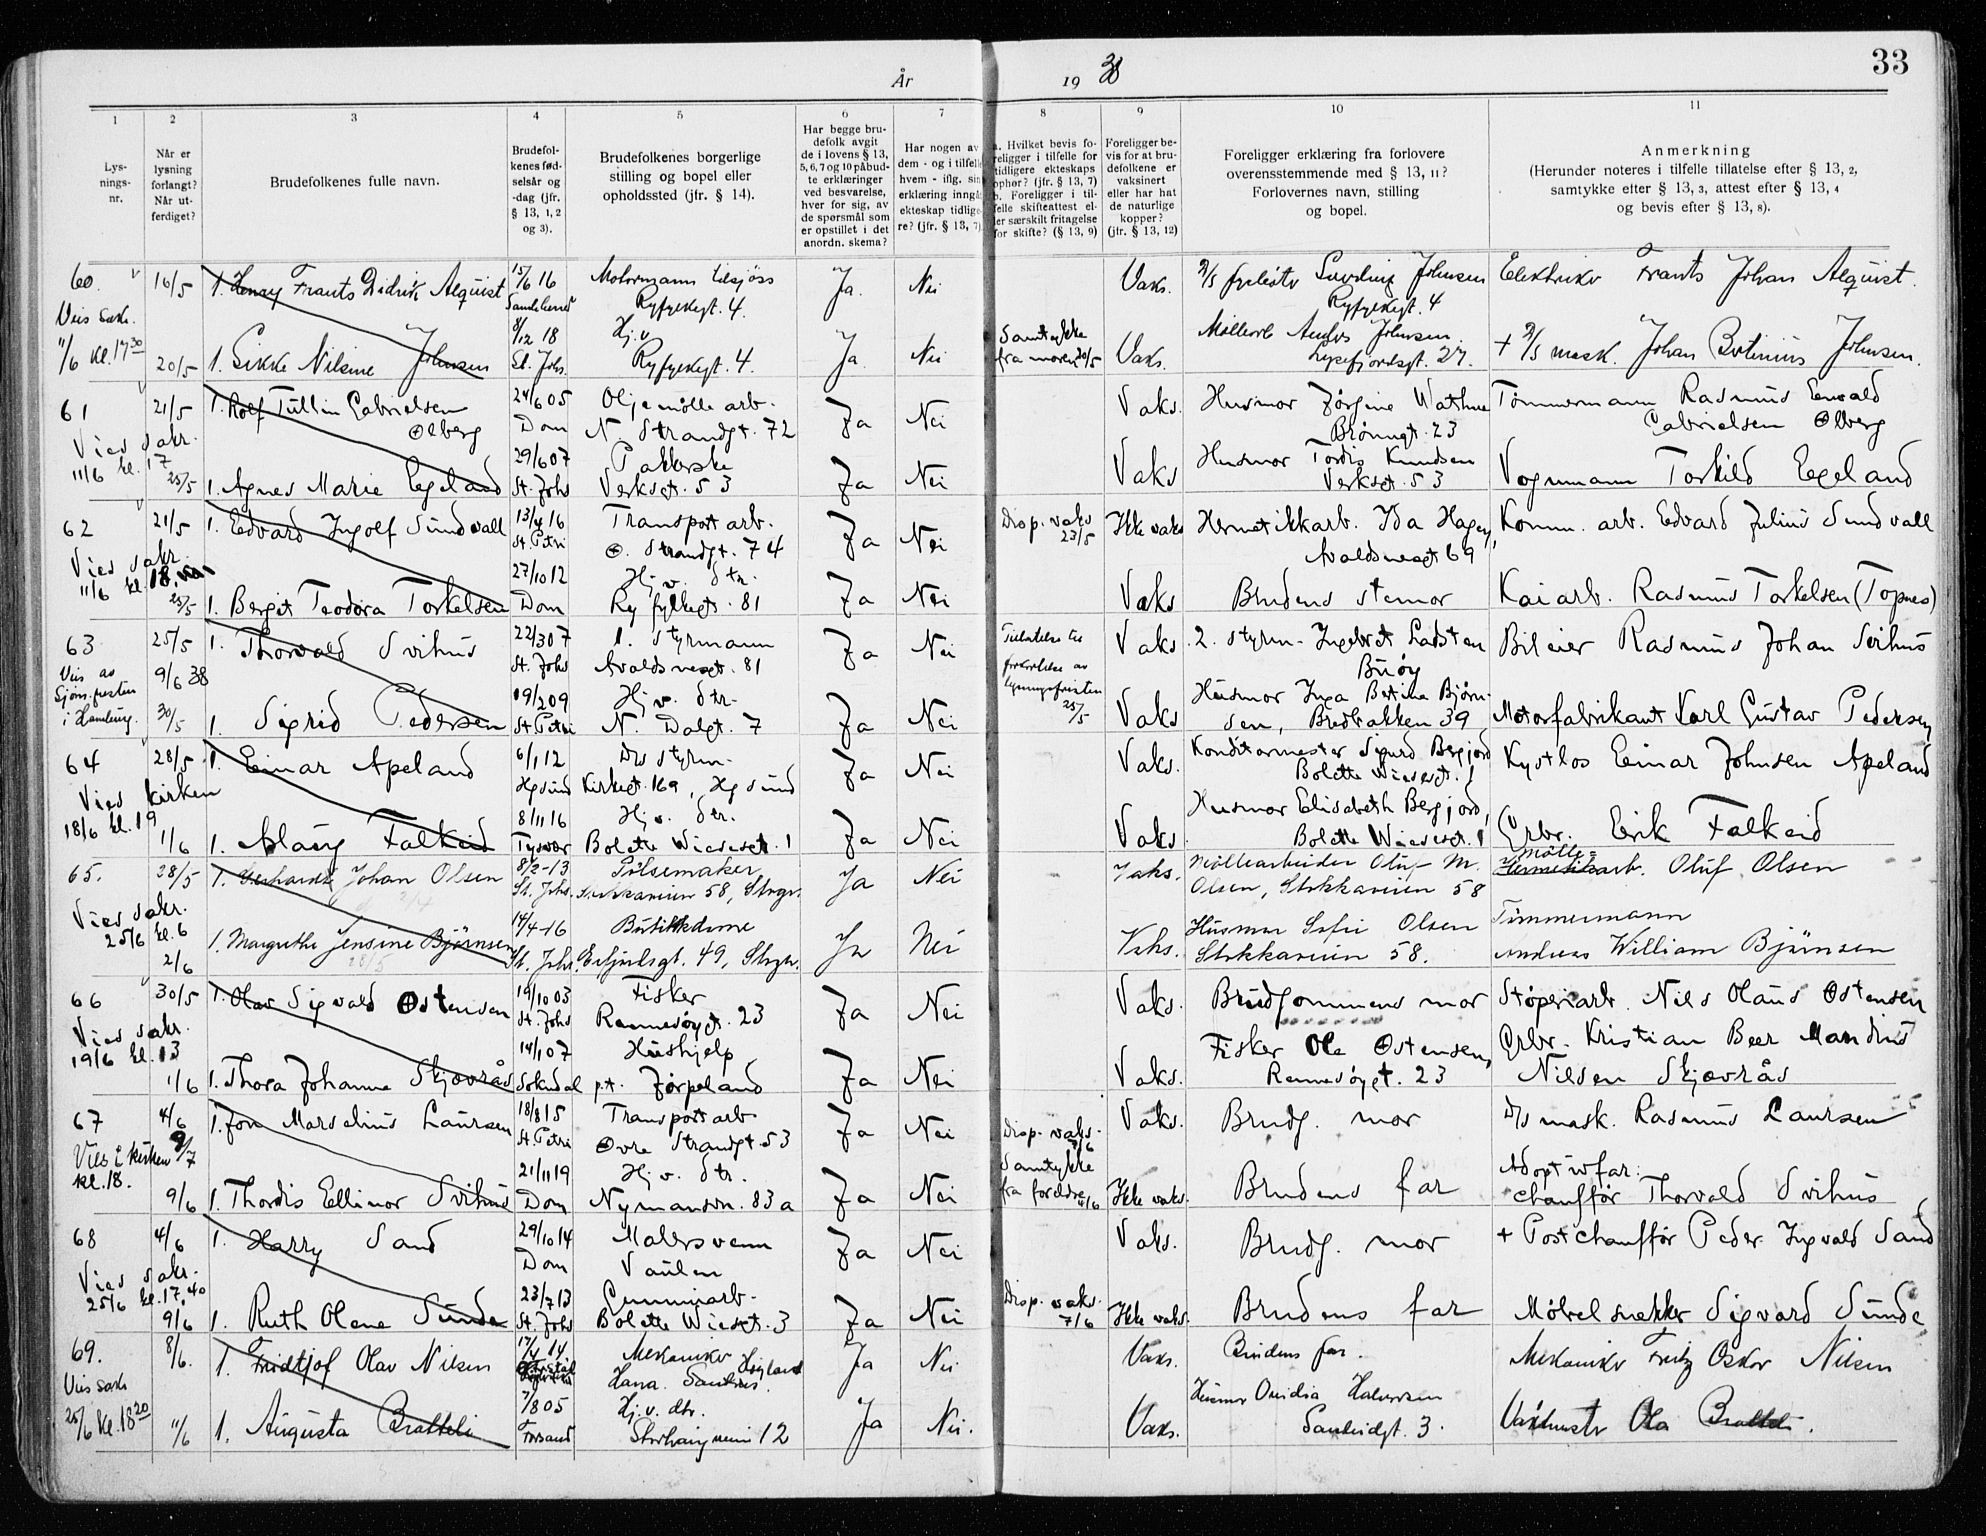 33
År 1938
1 2 3 4 5 6 7 8 9 10 11
Lys-
nings-
nr.
Når er
lysning
forlangt?
Når ut-
ferdiget?
Brudefolkenes fulle navn.
Brudefol-
kenes fød-
selsår og
-dag (jfr.
§ 13, 1, 2
og 3).
Brudefolkenes borgerlige
stilling og bopel eller
opholdssted (jfr. § 14).
Har begge bru-
defolk avgit
de i lovens § 13,
5, 6, 7 og 10 påbud-
te erklæringer
ved besvarelse,
hver for sig, av
de spørsmål som
er opstillet i det
anordn. skema?
Har nogen av
dem - og i tilfelle
hvem - iflg. sin
erklæring inngå
ekteskap tidlige
re? (jfr. § 13, 7)
a. Hvilket bevis fo-
religger i tilfelle for
tidligere ekteskaps
ophør? (jfr. § 13, 7)
b. Foreligger i til-
felle skifteattest el-
ler særskilt fritagelse
for skifte? (§ 13, 9)
Foreligger be-
vis for at bru-
defolkene er
vaksinert
eller har hat
de naturlige
kopper?
(jfr. § 13, 12)
Foreligger erklæring fra forlovere
overensstemmende med § 13, 11?
Forlovernes navn, stilling
og bopel.
Anmerkning
(Herunder noteres i tilfelle tillatelse efter § 13, 2,
samtykke efter § 13, 3, attest efter § 13, 4
og bevis efter § 13, 8).
60. 16/5 1. Henry Frants Didrik Alquist 15/6 16 Motormann tilsjøss Ja. Nei Vaks. Johnsen Elektriker Frants Johan Alquist.
Ryfylkegt. 4. Ryfylkegt. 4
Vies sakr. 8/12 18 Hj.v. Samtykke Anders Johnsen
11/6 kl. 17 30 20/5 1. Sikke Nilsine Johnsen St. Johs. Ryfylkegt. 4. Ja. Nei fra moren 20/5 Vaks. Lysefjordsgt. 27. + D/S mask. Johan Johnsen.
61 21/5 1. Rolf Tullin Gabrielsen 24/6 05 Oljemølle arb. Ja Nei Vaks. Husmor Jørgine Wathne Tømmermann Rasmus Enwald
Ølberg Dom N. Strandgt. 72 Brønngt. 23 Gabrielsen Ølberg
Vies sakr. 29/6 07 Pakkerske Husmor Tordis Knudsen
11/6 kl. 17 25/5 1. Agnes Marie Egeland St. Johs Verksgt. 53 Ja Nei Vaks Verksgt. 53 Vognmann Torkild Egeland
62 21/5 1. Edvard Ingolf Sundvall 13/4 16 Transport arb. Ja Nei Disp. vaks 23/5 Ikke vaks Hermetikkarb. Ida Hagen, Komm. arb. Edvard Julius Sundvall
St. Petri Ø. Strandgt. 74 Avaldsnesgt 69
Vies sakr. 27/10 12 Hj. v. dtr.
11/6 kl. 18. 25/5 1. Bergit Teodora Torkelsen Dom Ryfylkegt. 81 Ja Nei Vaks Brudens stemor Kaiarb. Rasmus Torkelsen (Topnes)
63 25/5 1. Thorvald Svihus 22/3 07 1. styrmann Ja Nei Tillatelse til Vaks. 2. styrm. Ingebret Ladsten Bileier Rasmus Johan Svihus
Vies av 9/6 38 St. Johs Avaldsnesgt. 81 forkortelse av Buøy
Sjøm.presten 19/2 09 Hj. v. dtr. lysningsfristen Husmor Inga Betine Bjørn-
i Hamburg. 30/5 1. Sigrid Pedersen St. Petri N. Dalgt. 7 Ja Nei 25/5 Vaks sen, Bredbakken 39 Motorfabrikant Karl Gustav Pedersen
64 28/5 1. Einar Apeland 6/1 12 D/s styrm. Ja Nei Vaks. Konditormester Sigurd Bergjord Kystlos Einar Johnsen Apeland
Hgsund Kirkegt. 169, Hgsund Bolette Wiesesgt. 1
Vies kirken 8/11 16 Hj. v. dtr. Husmor Elisabeth Bergjord,
18/6 kl. 19 1/6 1. Aslaug Falkeid Tysvær Bolette Wiesesgt. 1 Ja Nei Vaks. Bolette Wiesesgt. 1 Grbr. Erik Falkeid
65. 28/5 1. Gerhardt Johan Olsen 8/2-13 Pølsemaker Ja Nei Vaks. Møllearbeider Oluf M. Mølle-
St. Johs. 58, Stvgr. Olsen, Stokkaveien 58 Hermetikkarb. Oluf Olsen
Vies sakr. 14/4-16 Butikkdame Husmor Sofie Olsen Timmermann
25/6 kl. 6 2/6 1. Margrethe Jensine Bjørnsen St. Johs. Erfjordsgt. 49, Stvgr. Ja Nei Vaks. Stokkaveien 58. Andreas William Bjørnsen
28/5
66 30/5 1. Olav Sigvald Østensen 19/10 03 Fisker Ja Nei Vaks. Brudgommens mor Støperiarb. Nils Olaus Østensen
St. Johs Rennesøygt. 23
Vies sakr. 14/1 07 Hushjelp Fisker Ole Østensen, Grbr. Kristian Beer Mandius
19/6 kl. 13 1/6 1. Thora Johanne Skjævrås Sokndal p.t. Jørpeland Ja Nei Vaks. Rennesøygt. 23 Nilsen Skjævrås
67 4/6 1. Jon Marselius Laursen 18/8 15 Transport arb Ja Nei Disp. vaks. 7/6 Vaks. Brudg. mor D/s mask. Rasmus Laursen
St. Petri Øvre Strandgt. 53
Vies i kirken 9/7 21/11 19 Hj. v. dtr. Samtykke Adoptivfar:
kl. 18. 9/6 1. Thordis Ellinor Svihus Dom Nymansvn. 83a Ja Nei fra foreldre 4/6 Ikke vaks. Brudens far chauffør Thorvald Svihus
68 4/6 1. Harry Sand 29/10 14 Malersvenn Ja Nei Vaks. Brudg. mor + Postchauffør Peder Ingvald Sand
Dom Vaulen
Vies sakr. 23/7 13 Gummiarb.
25/6 kl. 17,40 9/6 1. Ruth Olene Sunde St. Johs Bolette Wiesesgt. 3 Ja Nei Disp. vaks. 7/6 Ikke vaks. Brudens far Møbelsnekker Sigvard Sunde
69. 8/6. 1. Fridtjof Olav Nilsen 17/4 14 Mekaniker Ja Nei Vaks. Brudens far. Mekaniker Fritz Oskar Nilsen
Hana. Sandnes. Høyland
Vies sakr 7/8 05 Hj. v. dtr. Husmor Halvorsen
25/6 kl. 18 20 11/6 1. Augusta Bratteli Forsand 12 Ja Nei. Vaks. 3. Ola Bratteli.